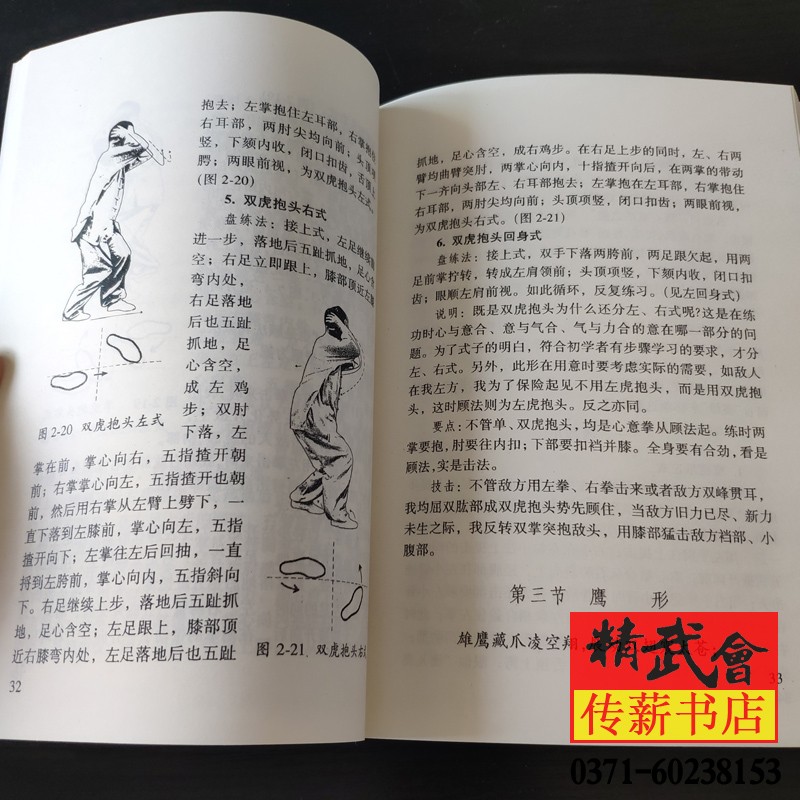 抱去；左掌抱住左耳部，右掌抱住
右耳部，两肘尖均向前；头顶项
竖，下颏内收，闭口扣齿，舌顶上
腭；两眼前视，为双虎抱头左式。
(图 2-20)
5. 双虎抱头右式
盘练法：接上式，左足继续
进一步，落地后五趾抓地，足心含
空；右足立即跟上，膝部顶近左膝
弯内处，
右足落地
后也五趾
抓地，足
心含空，
成左鸡
步；双肘
下落，左
图 2-20 双虎抱头左式
掌在前，掌心向右，五指揸开朝
前；右掌掌心向左，五指揸开也朝
前，然后用右掌从左臂上劈下，一
直下落到左膝前，掌心向左，五指
揸开向下；左掌往左后回抽，一直
捋到左胯前，掌心向内，五指斜向
下。右足继续上步，落地后五趾抓
地，足心含空；左足跟上，膝部顶
近右膝弯内处，左足落地后也五趾
图 2-21 双虎抱头右式
32
抓地，足心含空，成右鸡步。在右足上步的同时，左、右两
臂均曲臂突肘，两掌心向内，十指揸开向后，在两掌的带动
下一齐向头部左、右耳部抱去；左掌抱在左耳部，右掌抱住
右耳部，两肘尖均向前；头顶项竖，闭口扣齿；两眼前视，
为双虎抱头右式。(图 2-21)
6. 双虎抱头回身式
盘练法：接上式，双手下落两胯前，两足跟欠起，用两
足前掌拧转，转成左肩领前；头顶项竖，下颏内收，闭口扣
齿；眼顺左肩前视。如此循环，反复练习。(见左回身式)
说明：既是双虎抱头为什么还分左、右式呢？这是在练
功时心与意合、意与气合、气与力合的意在哪一部分的问
题。为了式子的明白，符合初学者有步骤学习的要求，才分
左、右式。另外，此形在用意时要考虑实际的需要，如敌人
在我左方，我为了保险起见不用左虎抱头，而是用双虎抱
头，这时顾法则为左虎抱头。反之亦同。
要点：不管单、双虎抱头，均是心意拳从顾法起。练时两
掌要抱，肘要往内扣；下部要扣裆并膝。全身要有合劲，看是
顾法，实是击法。
技击：不管敌方用左拳、右拳击来或者敌方双峰贯耳，
我均屈双肱部成双虎抱头势先顾住，当敌方旧力已尽、新力
未生之际，我反转双掌突抱敌头，用膝部猛击敌方裆部、小
腹部。
第三节 鹰 形
雄鹰藏爪凌空翔，
33
精武會
传薪书店
0371-60238153